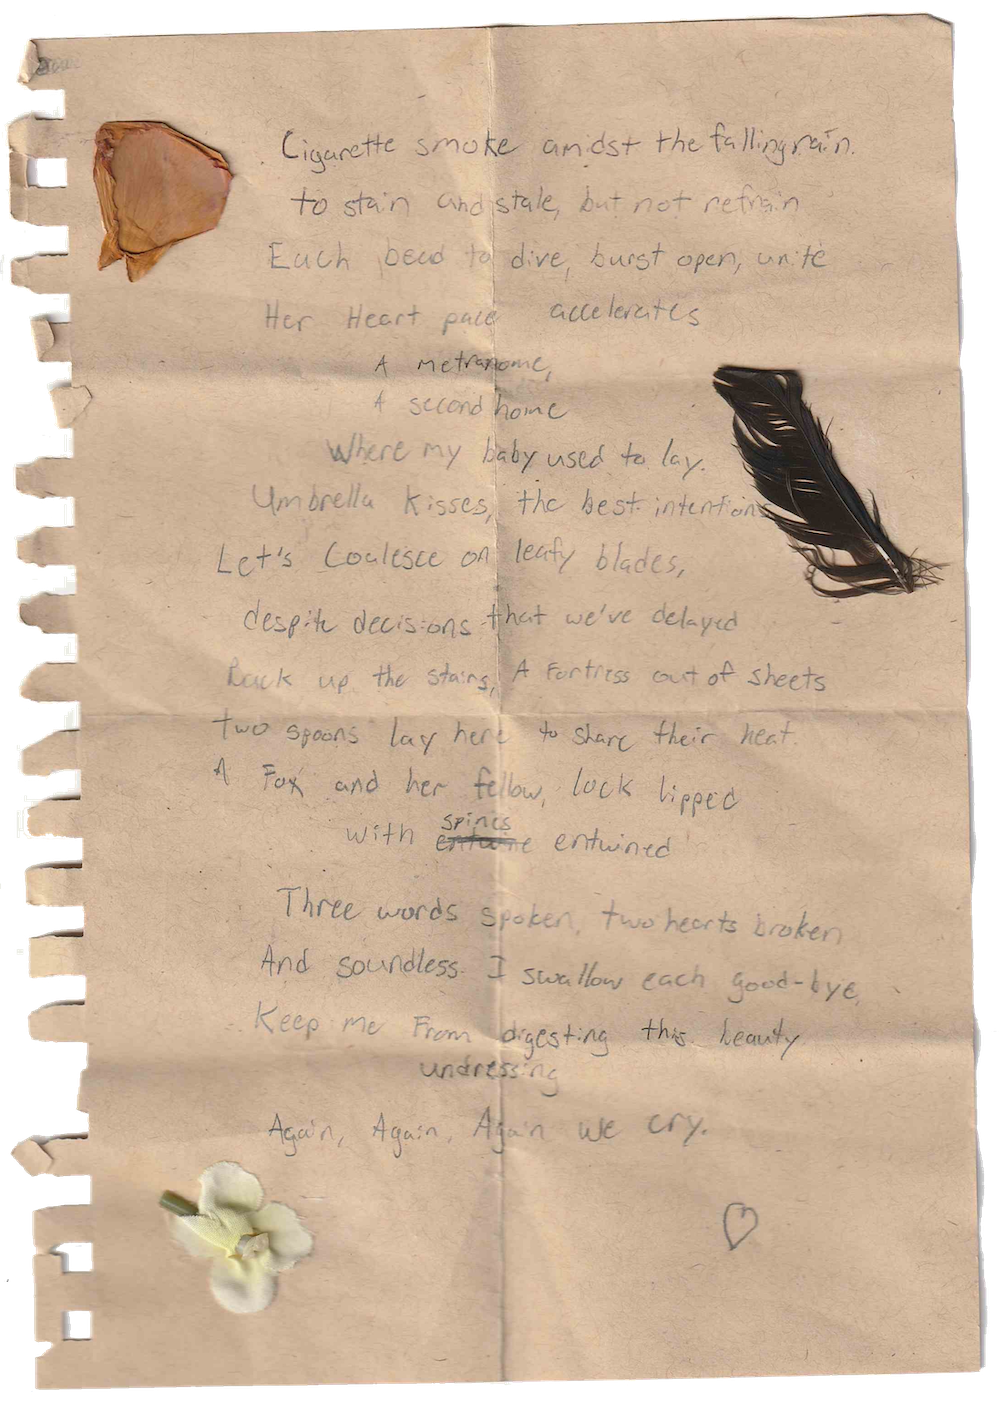 Cigarette smoke amidst the falling rain.
to stain and stale, but not refrain
Each bead to dive, burst open, unite
Her Heart pace accelerates
A metranome,
A second home
Where my baby used to lay.
Umbrella Kisses, the best intentions
Let's Coalesce on leafy blades,
despite decisions that we've delayed
Back up the stairs, A Fortress out of sheets
two spoons lay here to share their heat.
A Fox and her fellow, lock lipped
spines
with entwine entwined
Three words spoken, two hearts broken
And soundless I swallow each good-bye,
Keep me From digesting this beauty
undressing
Again, Again, Again we cry.